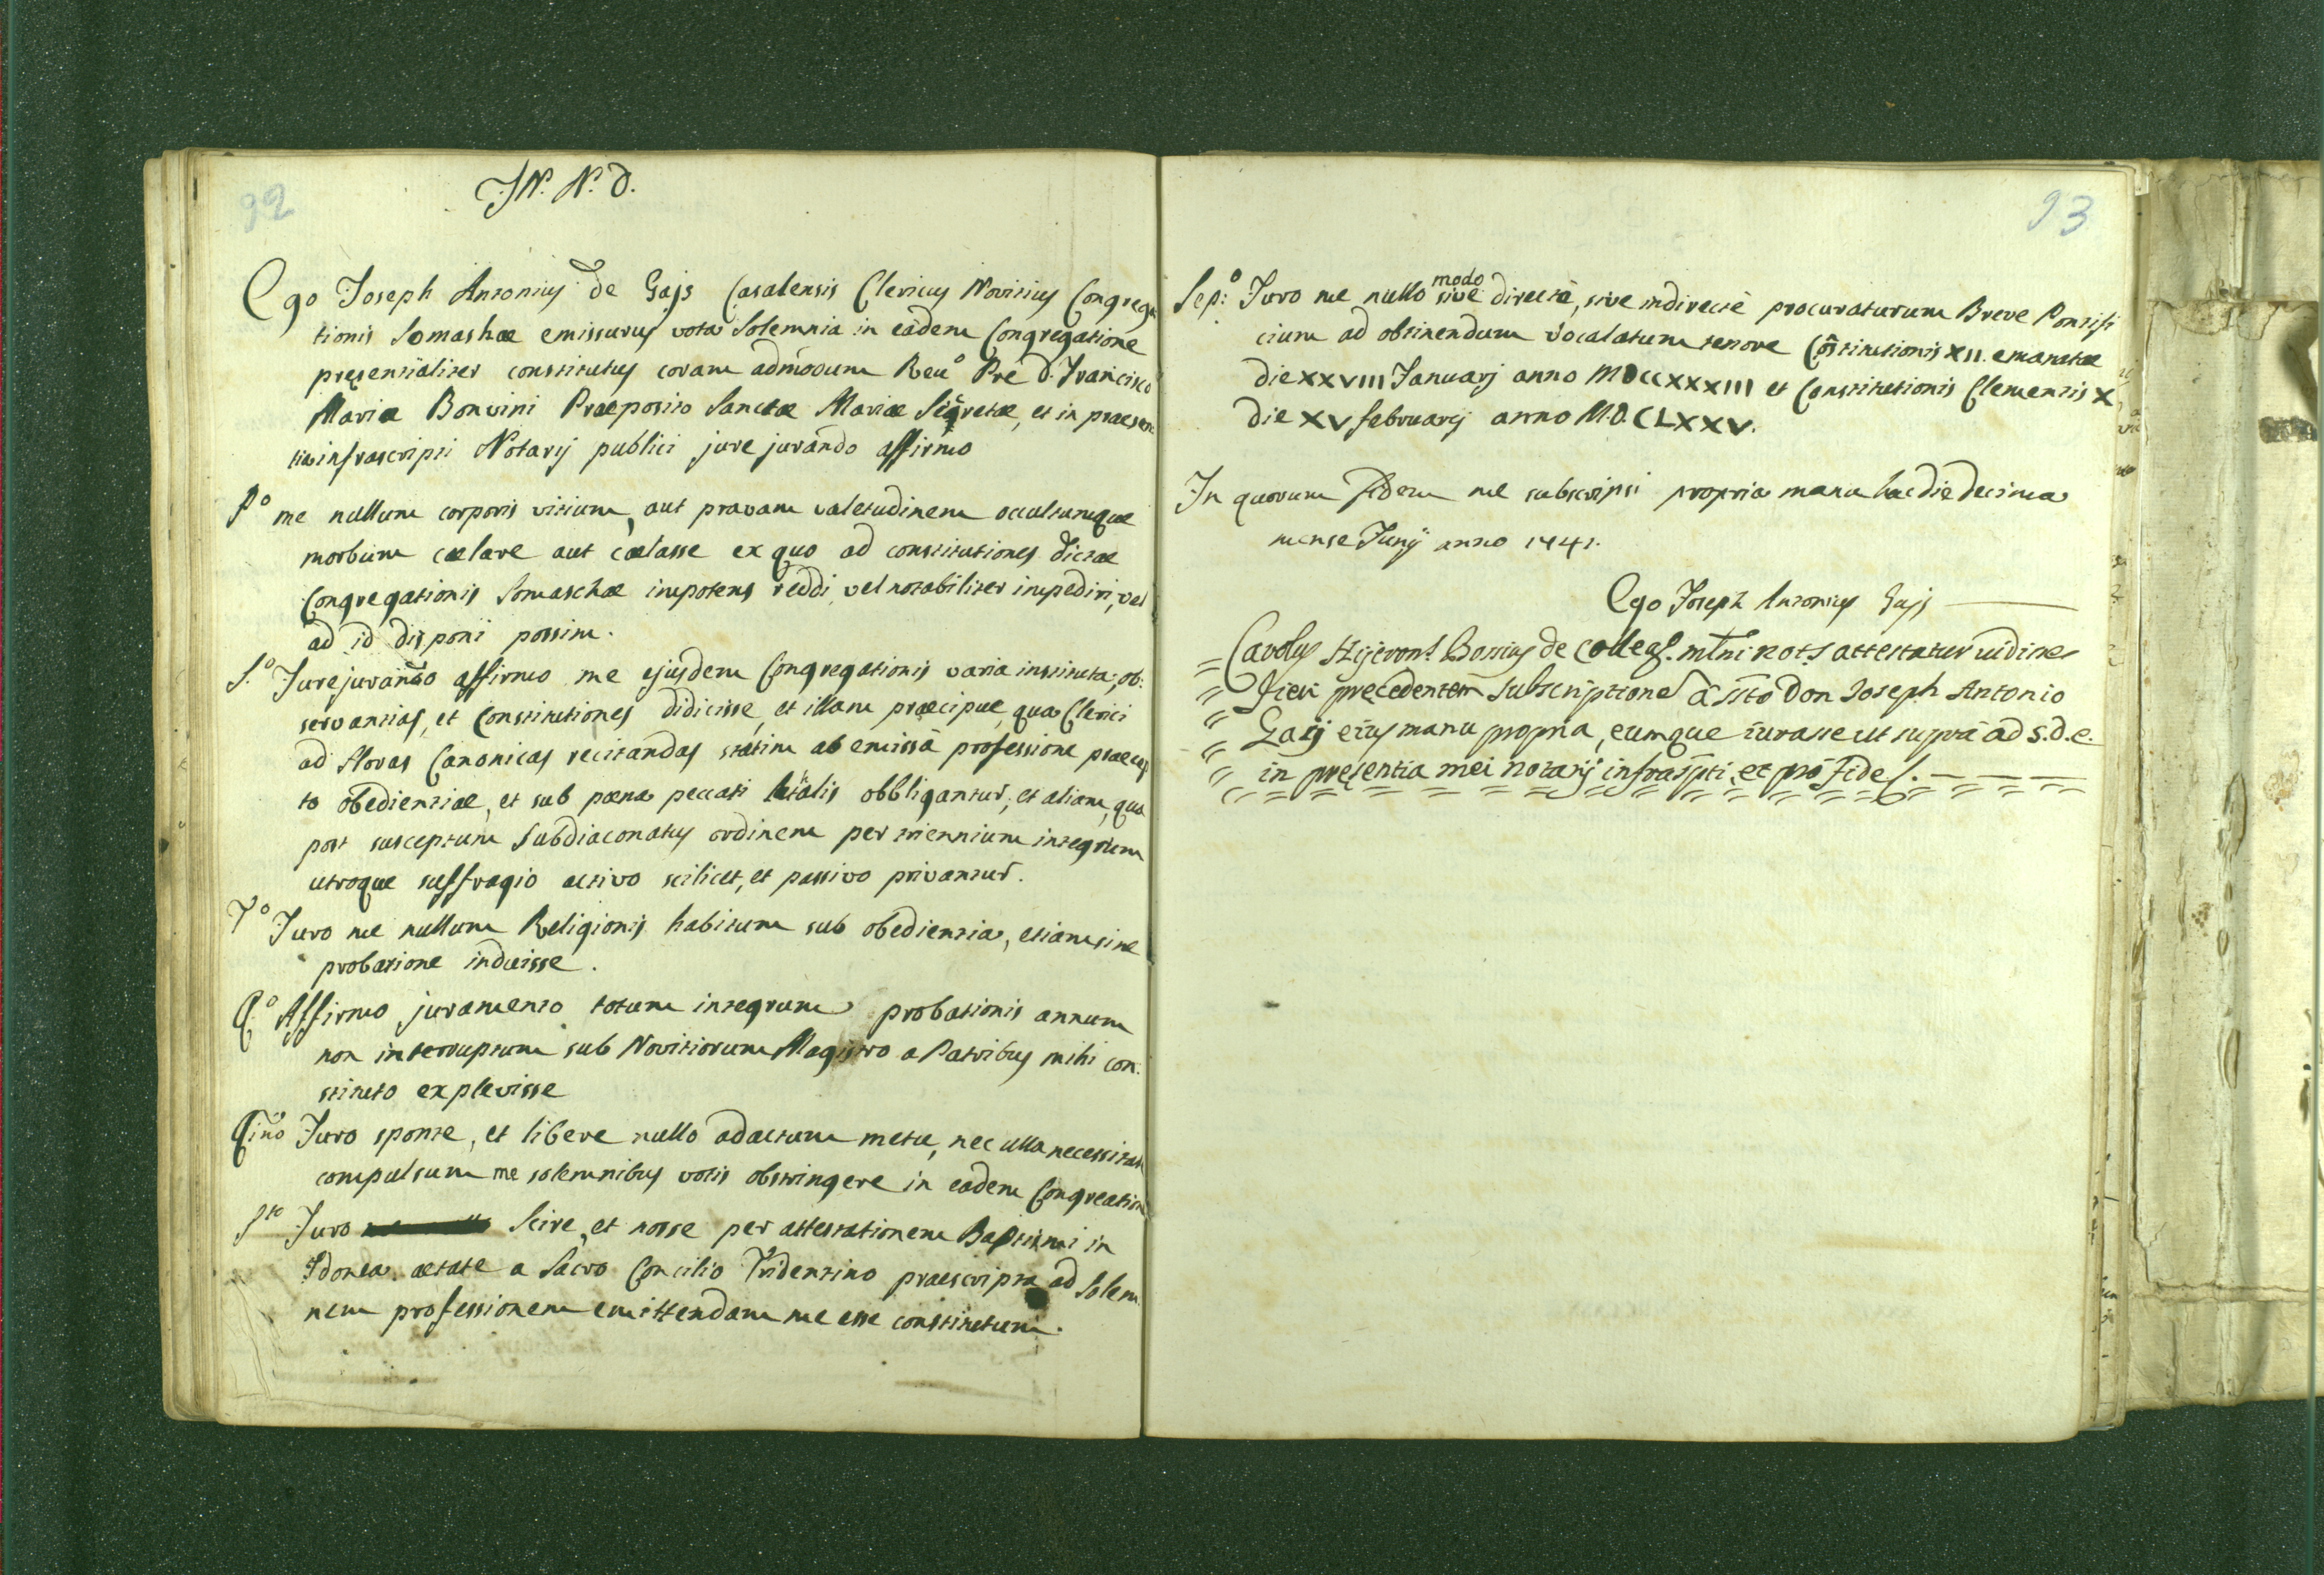 92
JN. N. D.
Ego Joseph Antonius de Gajs Casalensis Clericus Novitius Congrega
tionis Somashae emissurus vota Solemnia in eâdem Congregatione
presentialiter constitutus coram admodum Reu.o Pre D. Francisco
Maria Bonvini Praeposito Sanctae Mariae Segretae, et in praesen
tia infrascripti Notarij publici jure jurando affirmo
P.o me nullum corporis vitium, aut pravam valetudinem occultumque
morbum caelare aut caelasse ex quo ad constitutiones dictae
Congregationis Somaschae impotens reddi, vel notabiliter impediri, vel
ad id disponi possim.
S.o Jurejurando affirmo me ejusdem Congregationis varia instituta, ob:
servantias, et Constitutiones didicisse, et illam praecipue, qua Clerici
ad Horas Canonicas recitandas statim ab emissâ professione praecep
to obedientiae, et sub poena peccati letalis obbligantur, et aliam, qua
post susceptum Subdiaconatus ordinem per triennium integrum
utroque suffragio activo scilicet, et passivo privantur.
T.o Juro me nullum Religionis habitum sub obedientia, etiam sine
probatione induisse.
Q.o Affirmo juramento totum integrum probationis annum
non interruptum sub Novitiorum Magistro a Patribus mihi con
stituto explevisse
Qino Juro sponte, et libere nullo adactum metu, nec ulla necessitate
compulsum me solemnibus votis obstringere in eadem Congreatione
S.to Juro Scire, et nosse per attestationem Baptismi in
Idonea aetate a Sacro Concilio Tridentino praescripta ad Solem
nem professionem emittendam me esse constitutum.
93
Sep:o Juro me nullo modo sive directè, sive indirectè procuraturum Breve Pontifi
cium ad obtinendum Vocalatum tenore Cõstitutionis XII. emanatae
die XXVIII Januarj anno MDCCXXXIII et Constitutionis Clementis X
die XV februarij anno M.D.CLXXV.
In quorum fidem me subscripsi propria manu hac die decima
mense Junij anno 1741.
Ego Joseph Antonius Gajs
Carolus Hijeron.s Bossius de Colleg.s mlni not.s attestatur uidisse
fieri precedentem subscriptione â ssto Don Joseph Antonio
Gaij eius manu propria, eumque iurasse ut supra ad s.d.e.
in presentia mei notarij infrascripti, et pro fide s.